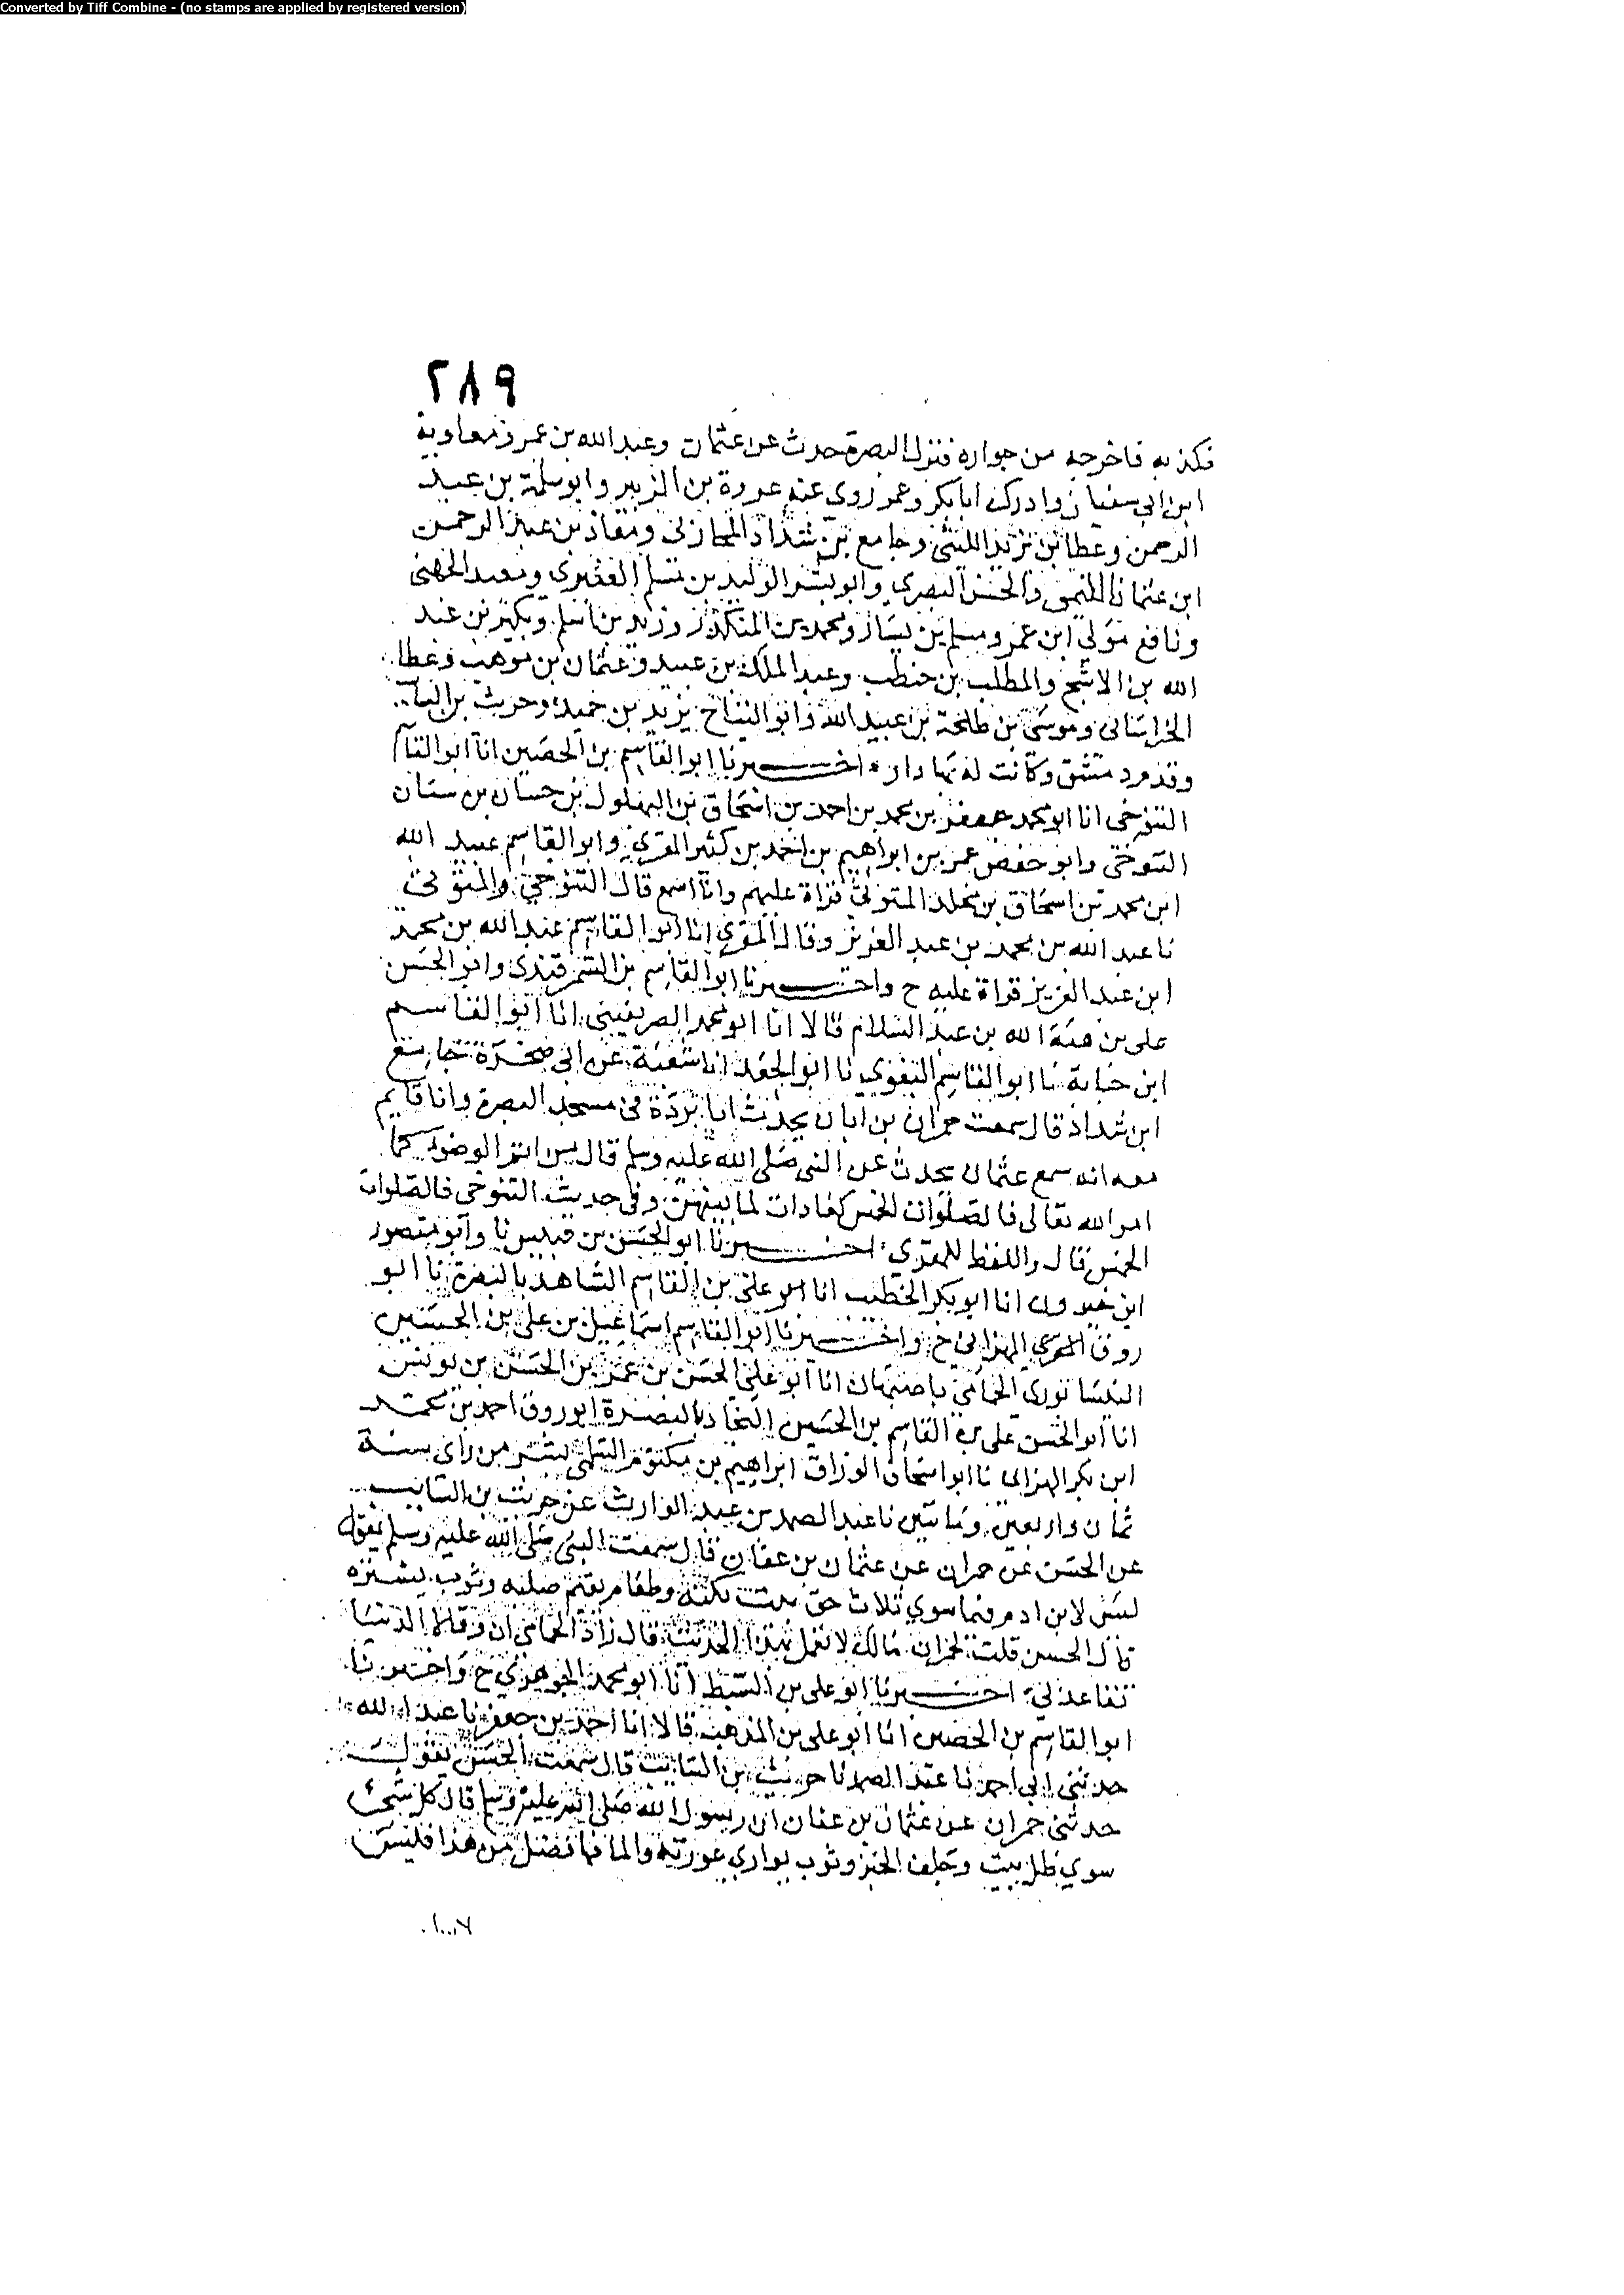 Converted by Tiff Combine - (no stamps are applied by registered version)
٢٨٩
فكذبه فاخرجه من جواره فنزل البصرة حدث عن عثمان وعبد الله بن عمر ومعاوية
ابن ابي سفيان وادرك ابا بكر وعمر روى عنه عروة بن الزبير وابو سلمة بن عبد
الرحمن وعطا بن يزيد الليثي وجامع بن شداد المحاربي ومعاذ بن عبد الرحمن
ابن عثمان التيمي والحسن البصري وابو بشر الوليد بن مسلم العنبري ومعبد الجهني
ونافع مولى ابن عمر ومسلم بن يسار ومحمد بن المنكدر وزيد بن اسلم وبكير بن عبد
الله بن الاشج والمطلب بن حنطب وعبد الملك بن عبيد وعثمان بن موهب وعطا
الخراساني وموسى بن طلحة بن عبيد الله وابو التياح يزيد بن حميد وحريث بن السا
وقدم دمشق وكانت له بها دار اخبرنا ابو القاسم بن الحصين انا ابو القاسم
التنوخي انا ابو محمد جعفر بن محمد بن احمد بن اسحاق بن البهلول بن حسان بن سنان
التنوخي وابو حفص عمر بن ابراهيم بن احمد بن كثير المقري وابو القاسم عبيد الله
ابن محمد بن اسحاق بن مخلد المتوثي قراة عليهم وانا اسمع قال التنوخي والمتوثي
نا عبد الله بن محمد بن عبد العزيز وقال المقري انا ابو القاسم عبد الله بن محمد
ابن عبد العزيز قراة عليه ح واخبرنا ابو القاسم بن السمرقندي وابو الحسن
علي بن هبة الله بن عبد السلام قالا انا ابو محمد الصريفيني انا ابو القاسم
ابن حبابة نا ابو القاسم البغوي نا ابو الجعد انا شعبة عن ابي صخرة جامع
ابن شداد قال سمعت حمران بن ابان يحدث ابا بردة في مسجد البصرة وانا قايم
معه انه سمع عثمان يحدث عن النبي صلى الله عليه وسلم قال من اتم الوضو كما
امر الله تعالى فالصلوات الخمس كفارات لما بينهن وفي حديث التنوخي فالصلوات
الخمس قال واللفظ للمقري اخبرنا ابو الحسن بن قبيس نا وابو منصور
ابن خيرون انا ابو بكر الخطيب انا علي بن القاسم الشاهد بالبصرة نا ابو
روق الهزاني ح واخبرنا ابو القاسم اسماعيل بن علي بن الحسين
النيسابوري الحمامي باصبهان انا ابو علي الحسن بن عمر بن الحسن بن يونس
انا ابو الحسن علي بن القاسم بن الحسين النجاد بالبصرة ابو روق احمد بن محمد
ابن بكر الهزاني نا ابو اسحاق الوراق ابراهيم بن مكتوم السلمي بسر من راى سنة
ثمان واربعين ومايتين نا عبد الصمد بن عبد الوارث عن حريث بن السايب
عن الحسن عن حمران عن عثمان بن عفان قال سمعت النبي صلى الله عليه وسلم يقول
ليس لابن ادم فيما سوى ثلاث حق بيت يكنه وطعام يقيم صلبه وثوب يستره
قال الحسن قلت لحمران مالك لا تعمل بهذا الحديث قال زاد الحمامي ان وقالا الدنيا
تقاعد لي اخبرنا ابو علي بن السبط انا ابو محمد الجوهري ح واخبرنا
ابو القاسم بن الحصين انا ابو علي بن المذهب قالا انا احمد بن جعفر نا عبد الله
حدثني ابي احمد نا عبد الصمد نا حريث بن السايب قال سمعت الحسن يقول
حدثني حمران عن عثمان بن عفان ان رسول الله صلى الله عليه وسلم قال كل شيء
سوى ظل بيت وجلف الخبز وثوب يواري عورته والما فما فضل من هذا فليس